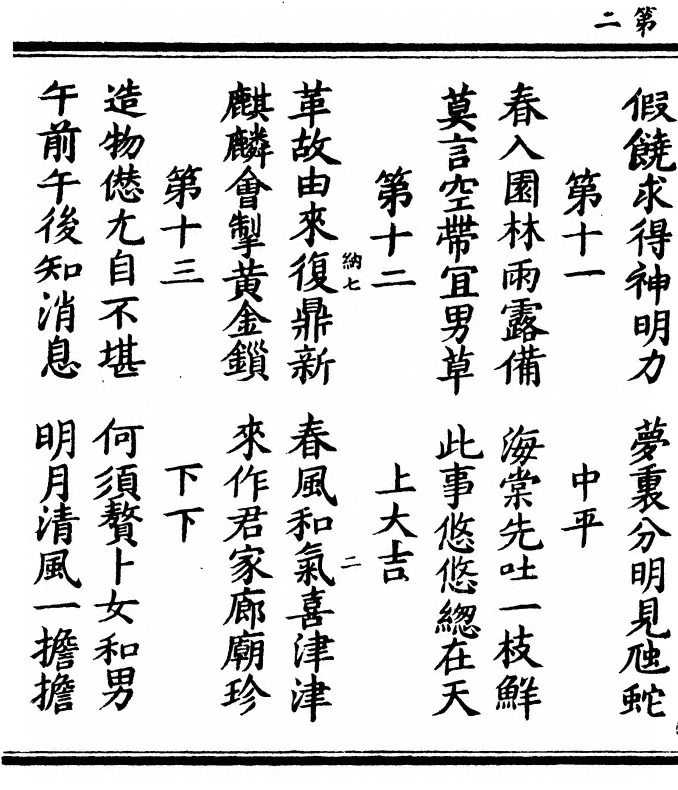 第二
假饒求得神明力　夢裏分明見虺蛇
第十一　中平
春入園林雨露備　海棠先吐一枝鮮
莫言空帶冝男草　此事悠悠緫在天
第十二　上大吉
納七　二
革故由來復鼎新　春風和氣喜津津
麒麟會掣黃金鎖　來作君家廊廟珍
第十三　下下
造物愆尤自不堪　何須贅卜女和男
午前午後知消息　明月清風一擔擔